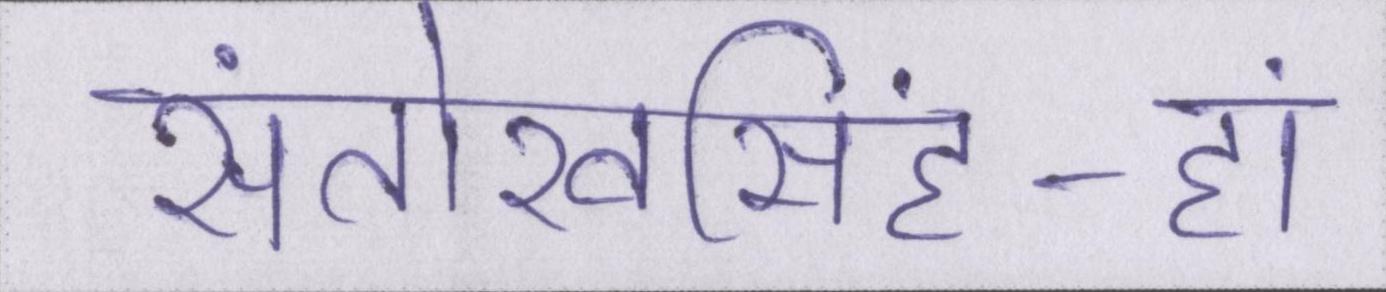 संतोखसिंहं-हां